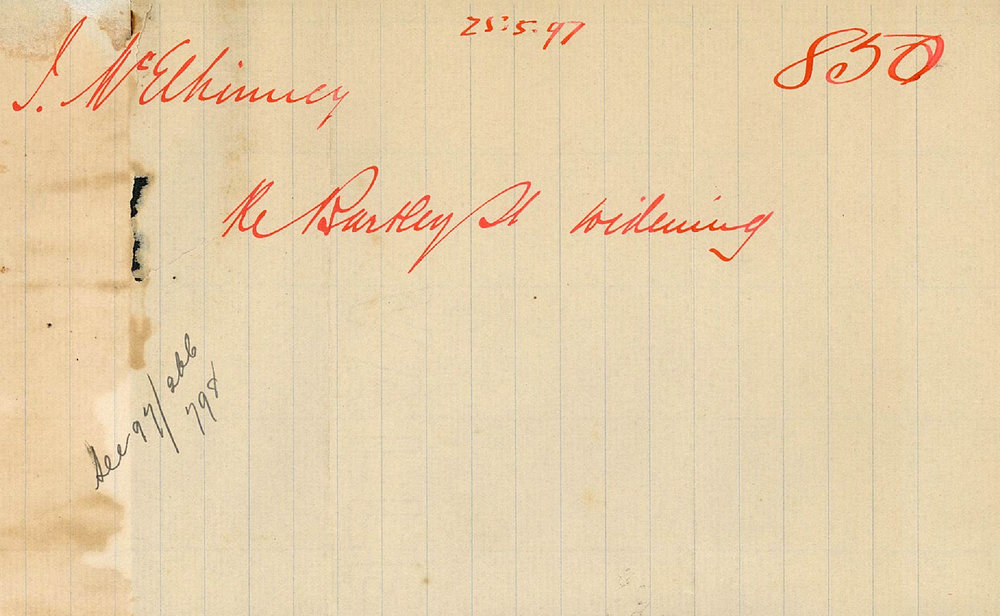 25:5:97
850
J. McElhinney
Re Barkley St widening
See 97/266
798